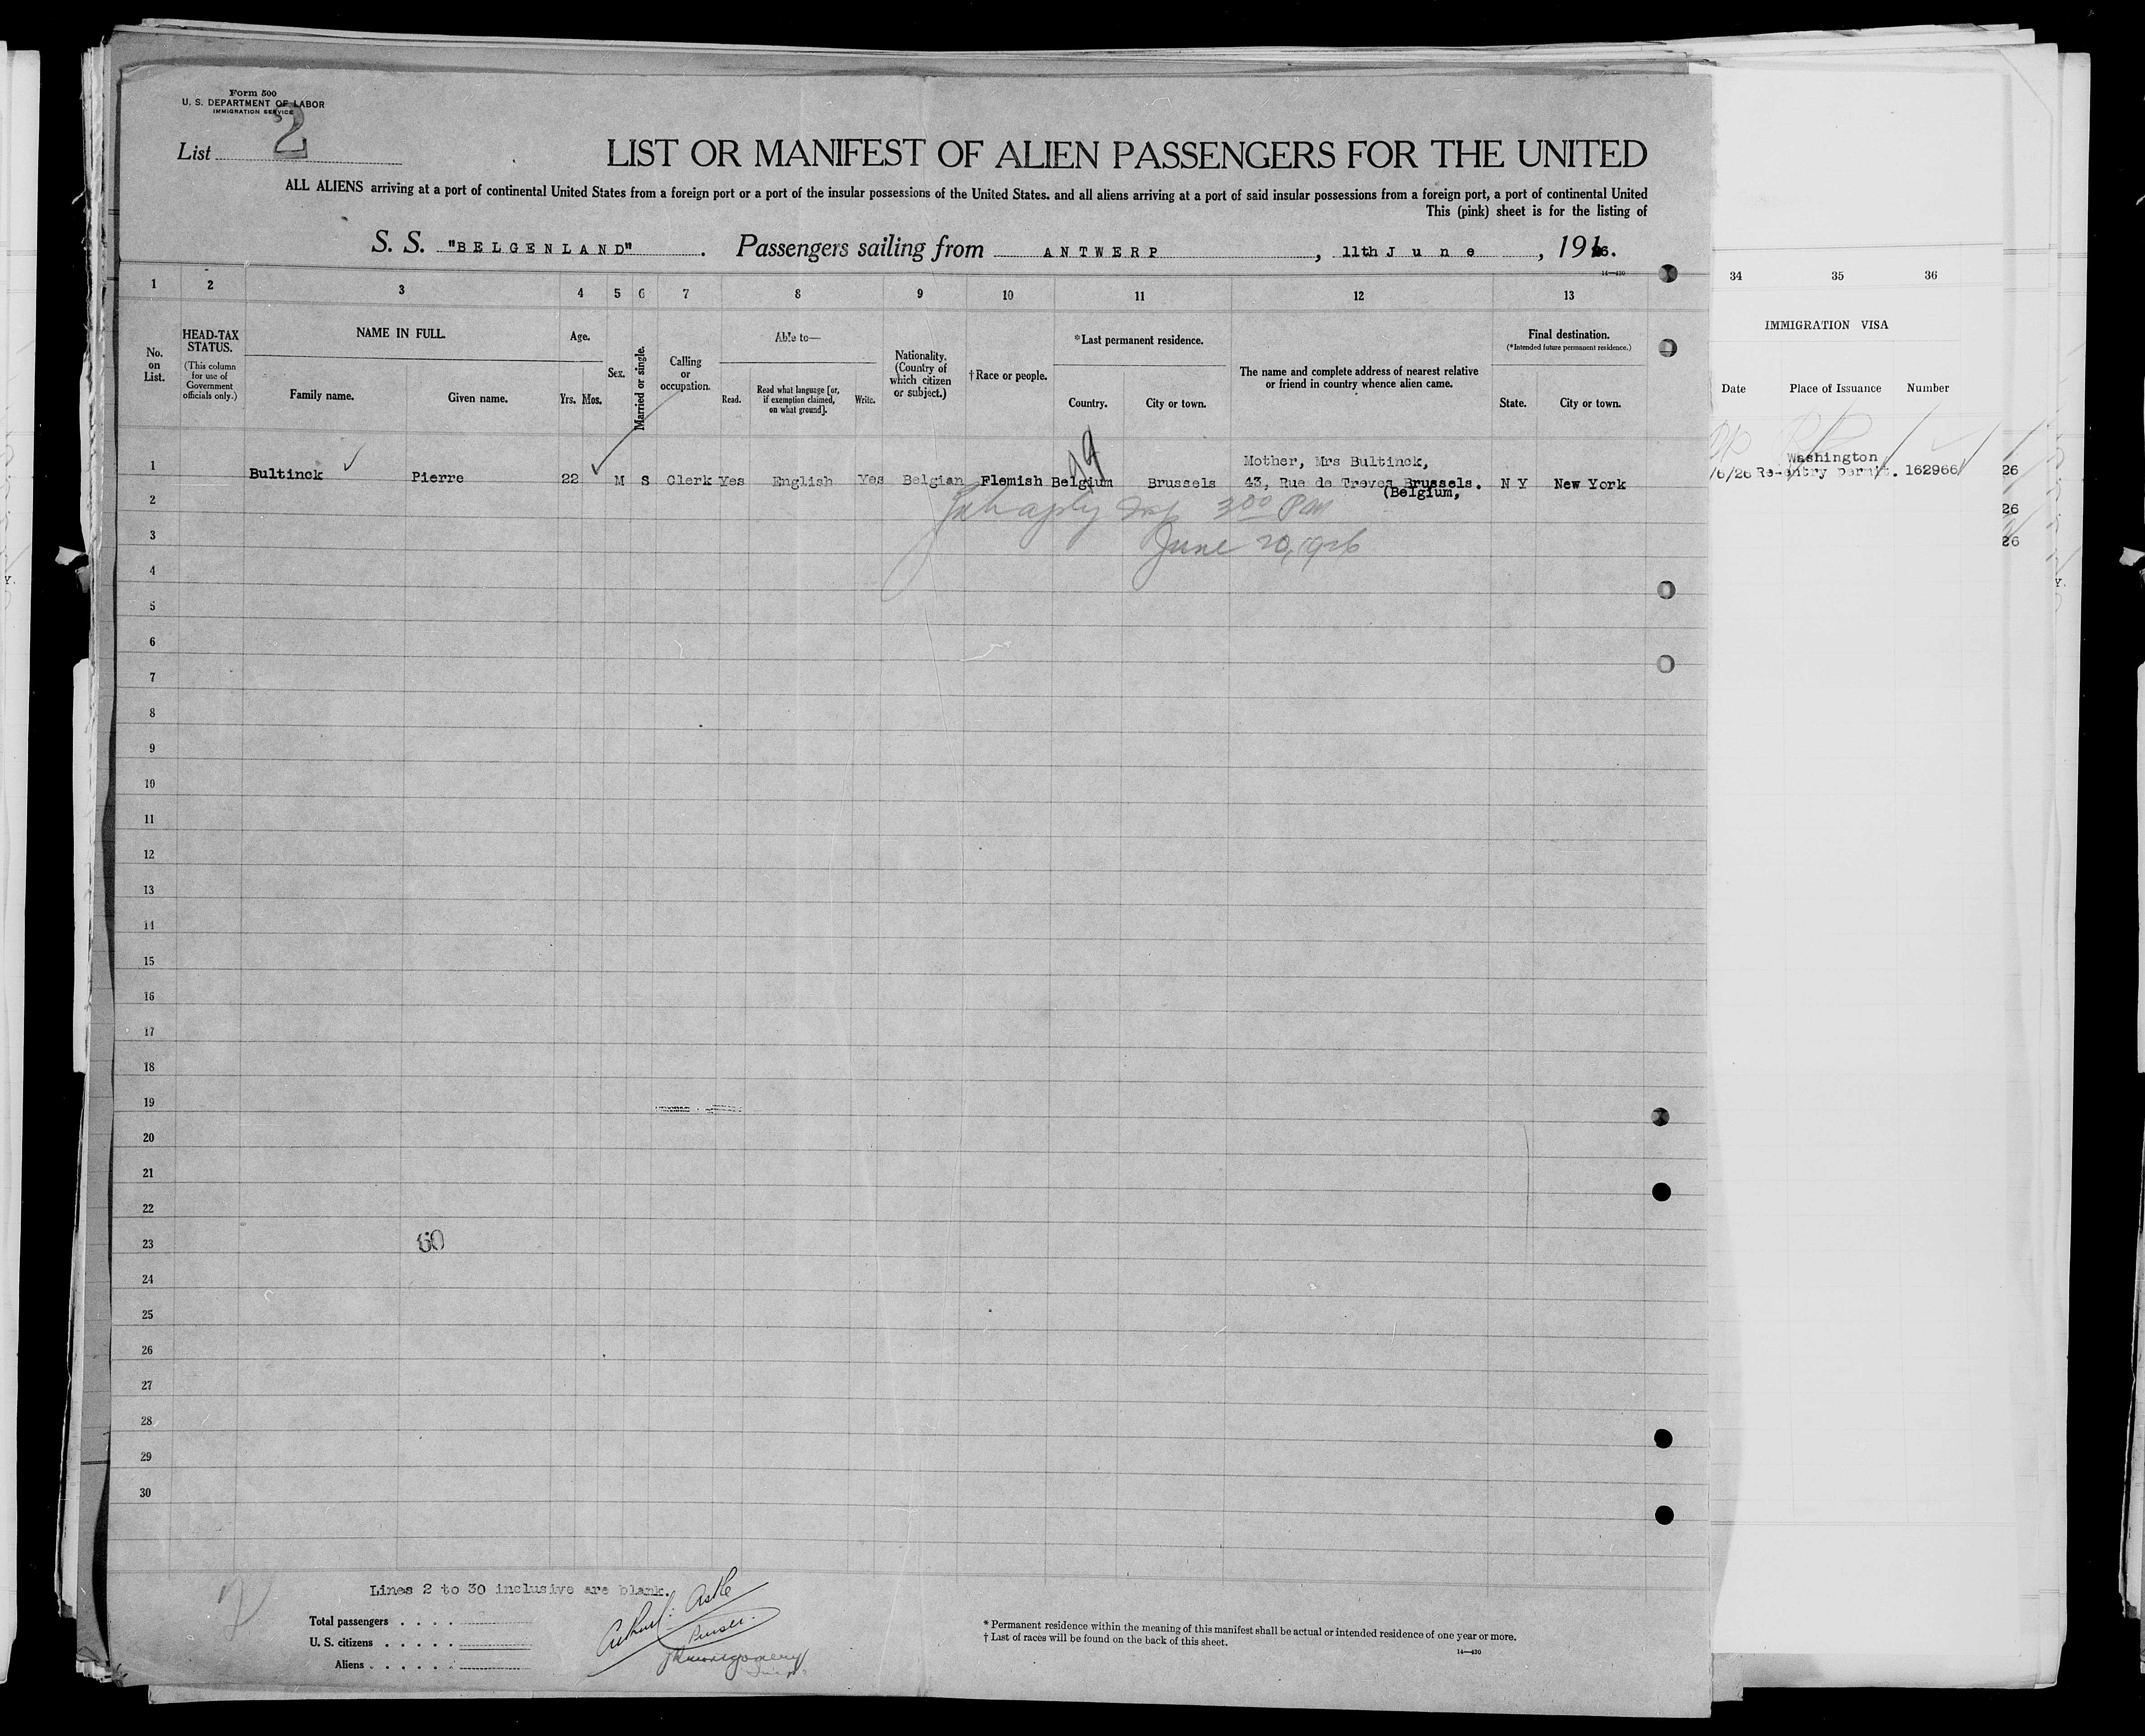 Form 500
U. S. DEPARTMENT OF LABOR
IMMIGRATION SERVICE
List 2
LIST OR MANIFEST OF ALIEN PASSENGERS FOR THE UNITED
ALL ALIENS arriving at a port of continental United States from a foreign port or a port of the insular possessions of the United States. and all aliens arriving at a port of said insular possessions from a foreign port, a port of continental United
This (pink) sheet is for the listing of
S. S. "BELGENLAND". Passengers sailing from ANTWERP, 11th June, 1926.
14—430
1 2 3 4 5 6 7 8 9 10 11 12 13
No. on List.
HEAD-TAX STATUS.
(This column for use of Government officials only.)
NAME IN FULL.
Family name. Given name.
Age.
Yrs. Mos.
Sex.
Married or single.
Calling or occupation.
Able to—
Read. Read what language [or, if exemption claimed, on what ground]. Write.
Nationality. (Country of which citizen or subject.)
†Race or people.
*Last permanent residence.
Country. City or town.
The name and complete address of nearest relative or friend in country whence alien came.
Final destination.
(*Intended future permanent residence.)
State. City or town.
34 35 36
IMMIGRATION VISA
Date Place of Issuance Number
99
Mother, Mrs Bultinck,
1 Bultinck Pierre 22 M S Clerk Yes English Yes Belgian Flemish Belgium Brussels 43, Rue de Treves Brussels. N Y New York
(Belgium,
Washington
/6/26 Re-entry permit. 162966 26
2 3⁰⁰ PM 26
3 June 20, 1926 26
4
5
6
7
8
9
10
11
12
13
14
15
16
17
18
19
20
21
22
23 60
24
25
26
27
28
29
30
2
Lines 2 to 30 inclusive are blank.
Total passengers . . . .
U. S. citizens . . . . .
Aliens . . . . . .
Purser.
* Permanent residence within the meaning of this manifest shall be actual or intended residence of one year or more.
† List of races will be found on the back of this sheet.
14—430
Y.
Y.